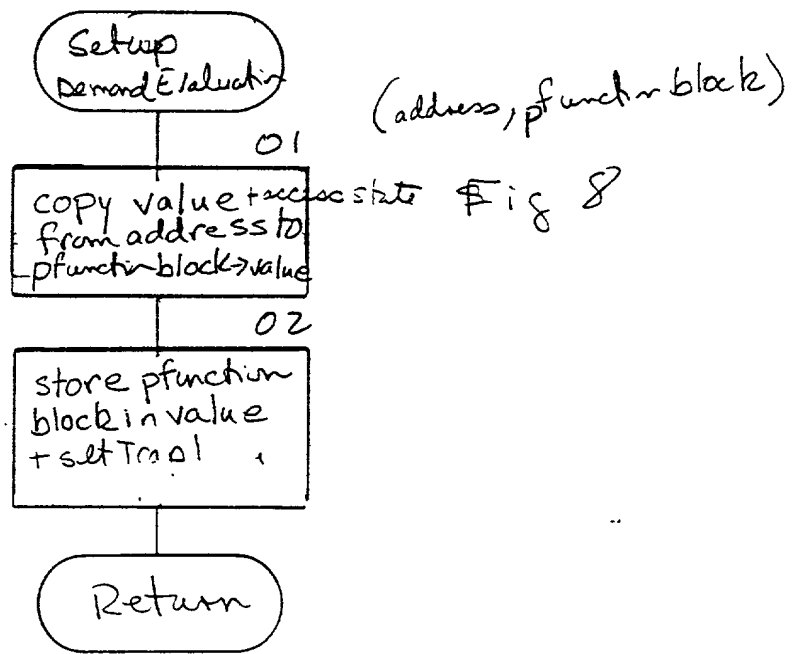 Setup
Demand Evaluation
(address, pfunction block)
01
copy value + access state
from address to
pfunction block→value
Fig 8
02
store pfunction
block in value
+ set Trap1
Return